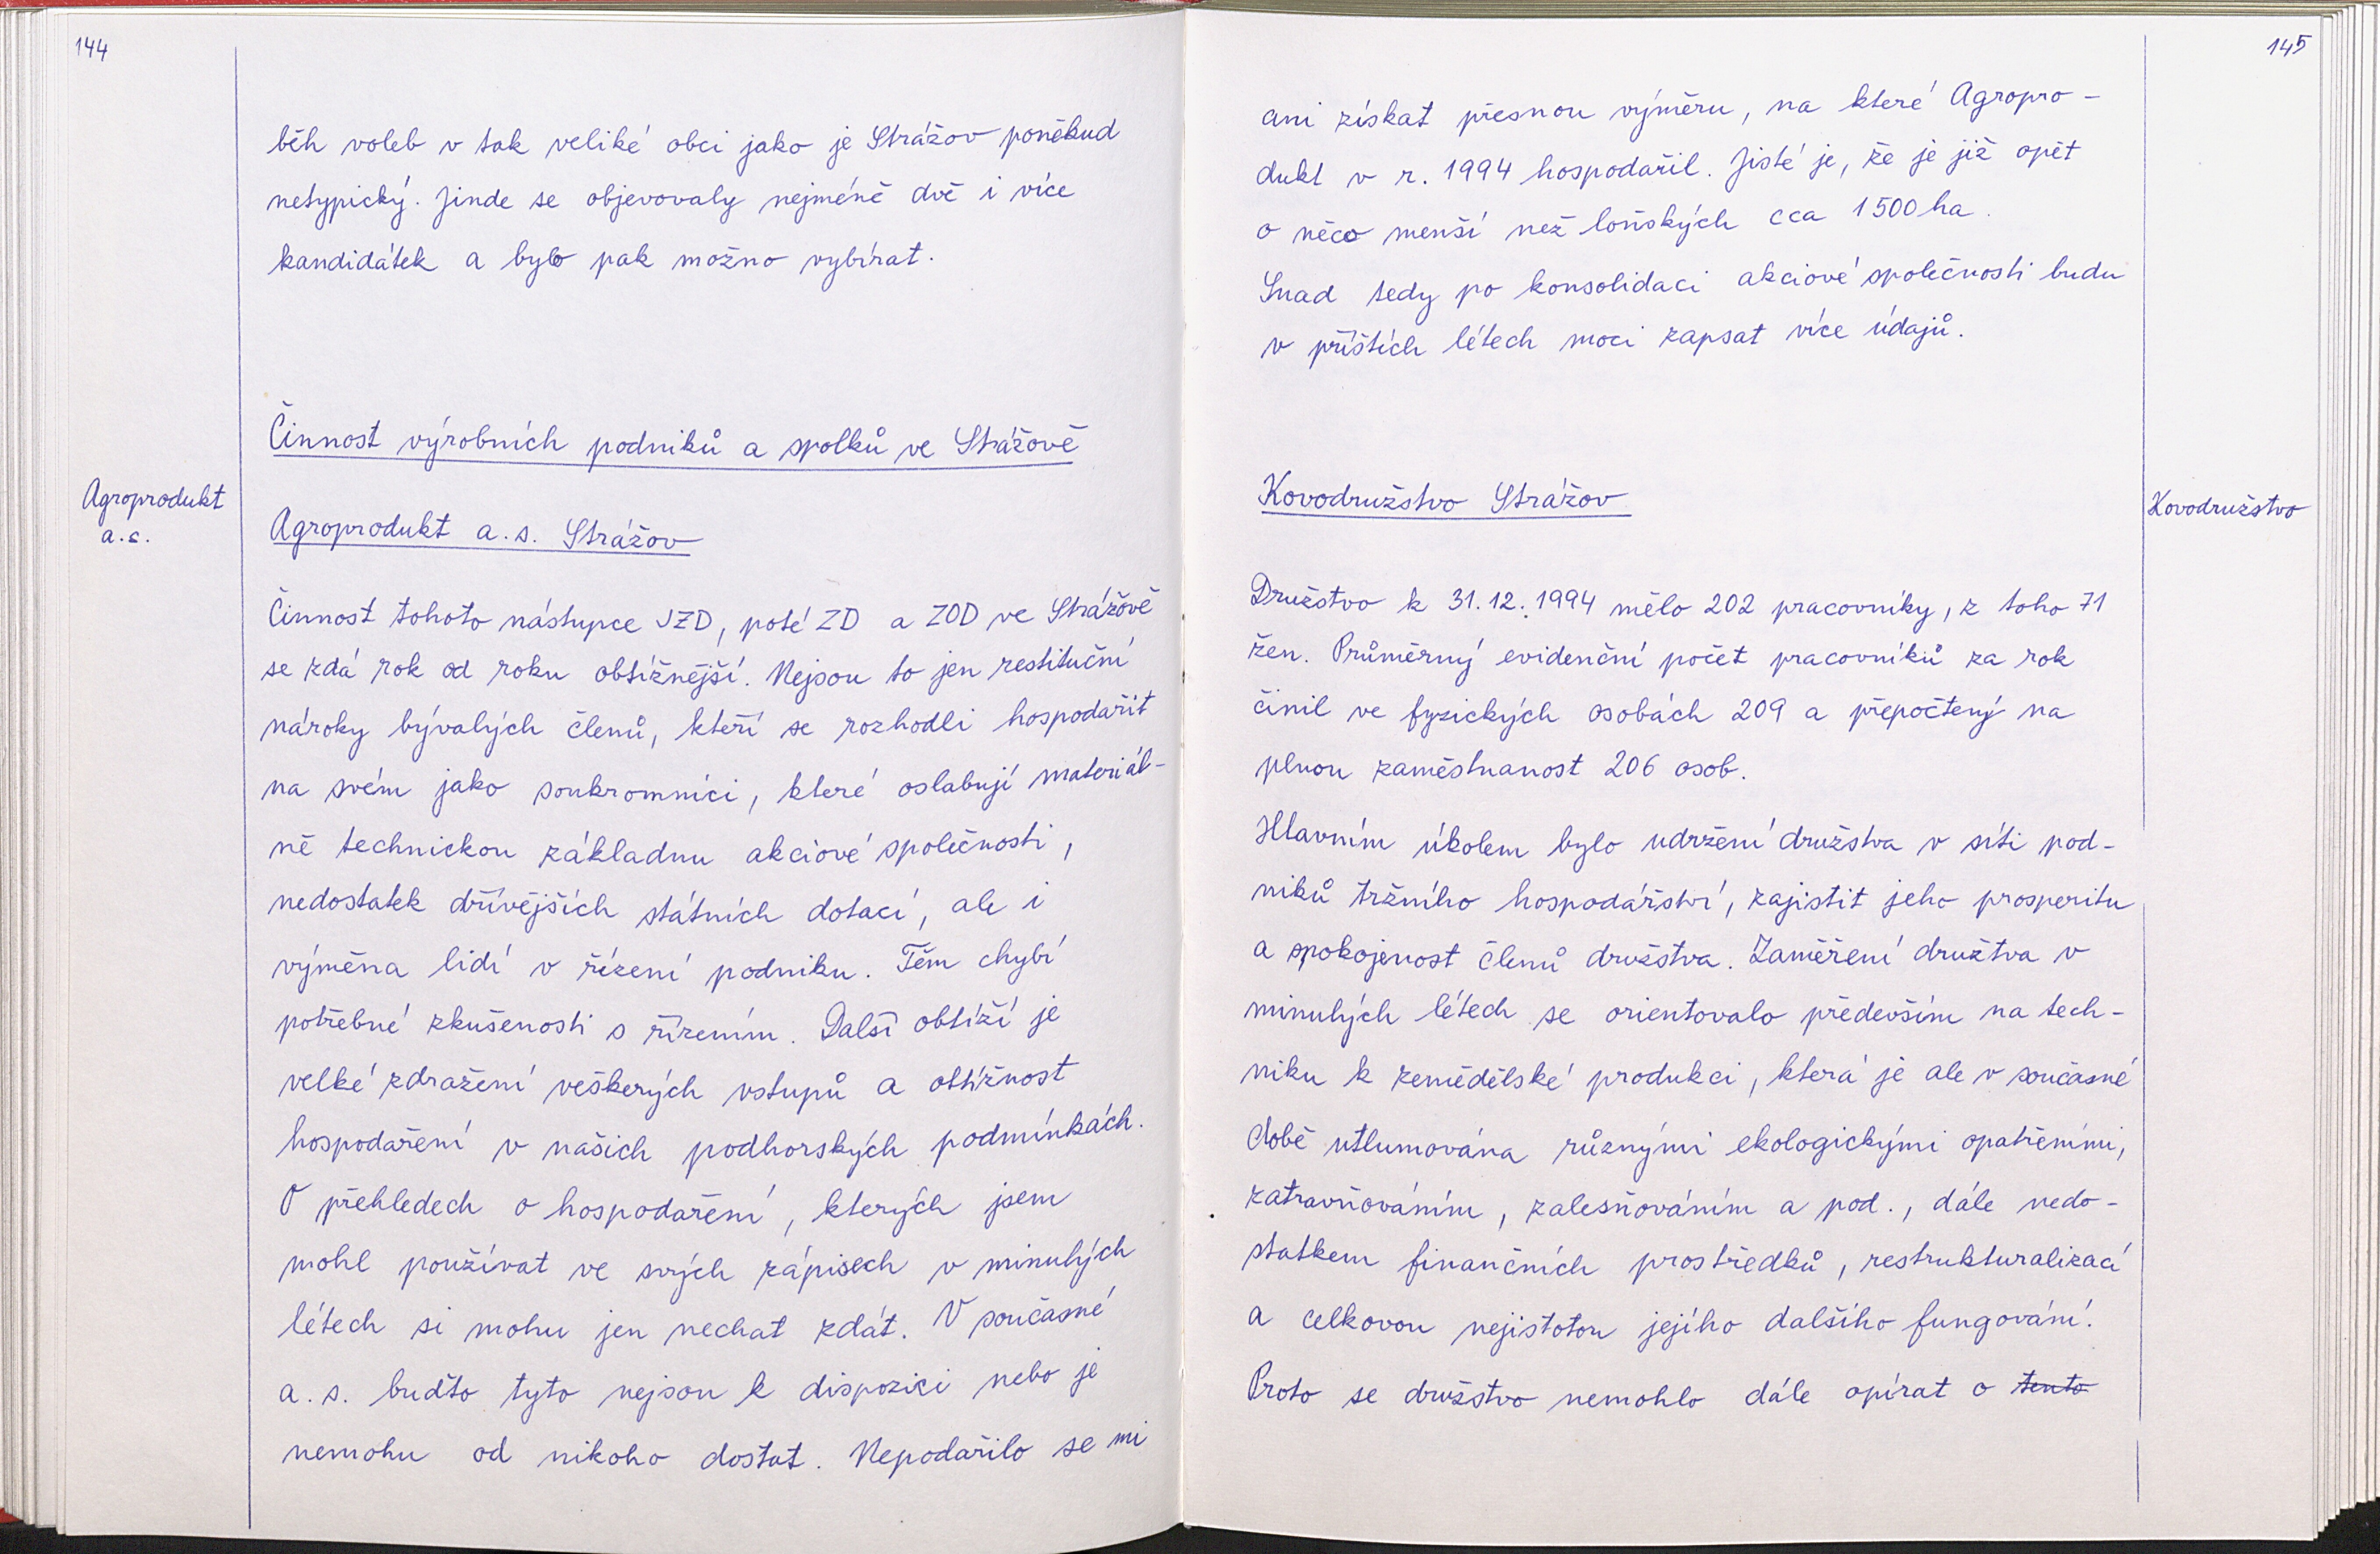 144
běh voleb v tak veliké obci jako je Strážov poněkud
netypický. Jinde se objevovaly nejméně dvě i více
kandidátek a bylo pak možno vybírat.
Činnost výrobních podniků a spolků ve Strážově
Agroprodukt
a.s.
Agroprodukt a.s. Strážov
Činnost tohoto nástupce JZD, poté ZD a ZOD ve Strážově
se zdá rok od roku obtížnější. Nejsou to jen restituční
nároky bývalých členů, kteří se rozhodli hospodařit
na svém jako soukromníci, které oslabují materiál-
ně technickou základnu akciové společnosti,
nedostatek dřívějších státních dotací, ale i
výměna lidí v řízení podniku. Těm chybí
potřebné zkušenosti s řízením. Další obtíží je
velké zdražení veškerých vstupů a obtížnost
hospodaření v našich podhorských podmínkách.
O přehledech o hospodaření, kterých jsem
mohl používat ve svých zápisech v minulých
létech si mohu jen nechat zdát. V současné
a.s. buďto tyto nejsou k dispozici nebo je
nemohu od nikoho dostat. Nepodařilo se mi
145
ani získat přesnou výměru, na které Agropro-
dukt v r. 1994 hospodařil. Jisté je, že je již opět
o něco menší než loňských cca 1500 ha.
Snad tedy po konsolidaci akciové společnosti budu
v příštích létech moci zapsat více údajů.
Kovodružstvo Strážov
Kovodružstvo
Družstvo k 31.12.1994 mělo 202 pracovníky, z toho 71
žen. Průměrný evidenční počet pracovníků za rok
činil ve fyzických osobách 209 a přepočtený na
plnou zaměstnanost 206 osob.
Hlavním úkolem bylo udržení družstva v síti pod-
niků tržního hospodářství, zajistit jeho prosperitu
a spokojenost členů družstva. Zaměření družtva v
minulých létech se orientovalo především na tech-
niku k zemědělské produkci, která je ale v současné
době utlumována různými ekologickými opatřeními,
zatravňováním, zalesňováním a pod., dále nedo-
statkem finančních prostředků, restrukturalizací
a celkovou nejistotou jejího dalšího fungování.
Proto se družstvo nemohlo dále opírat o tento